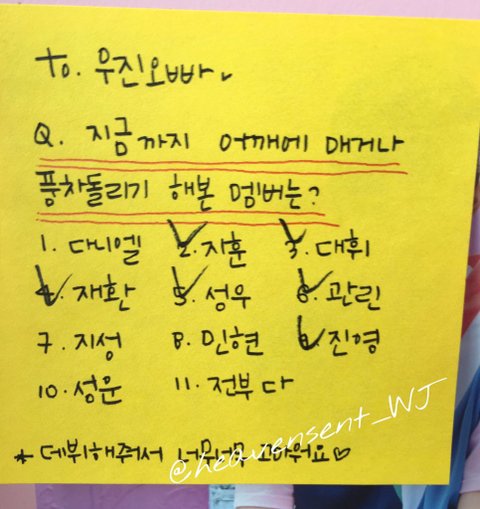 to. 우진오빠
Q. 지금까지 어깨에 매거나
풍차돌리기 해본 멤버는?
1. 다니엘 2. 지훈 3. 대휘
4. 재환 5. 성우 6. 관린
7. 지성 8. 민현 9. 진영
10. 성운 11. 전부 다
* 데뷔해줘서 너무너무 고마워요♡
@heavensent_WJ